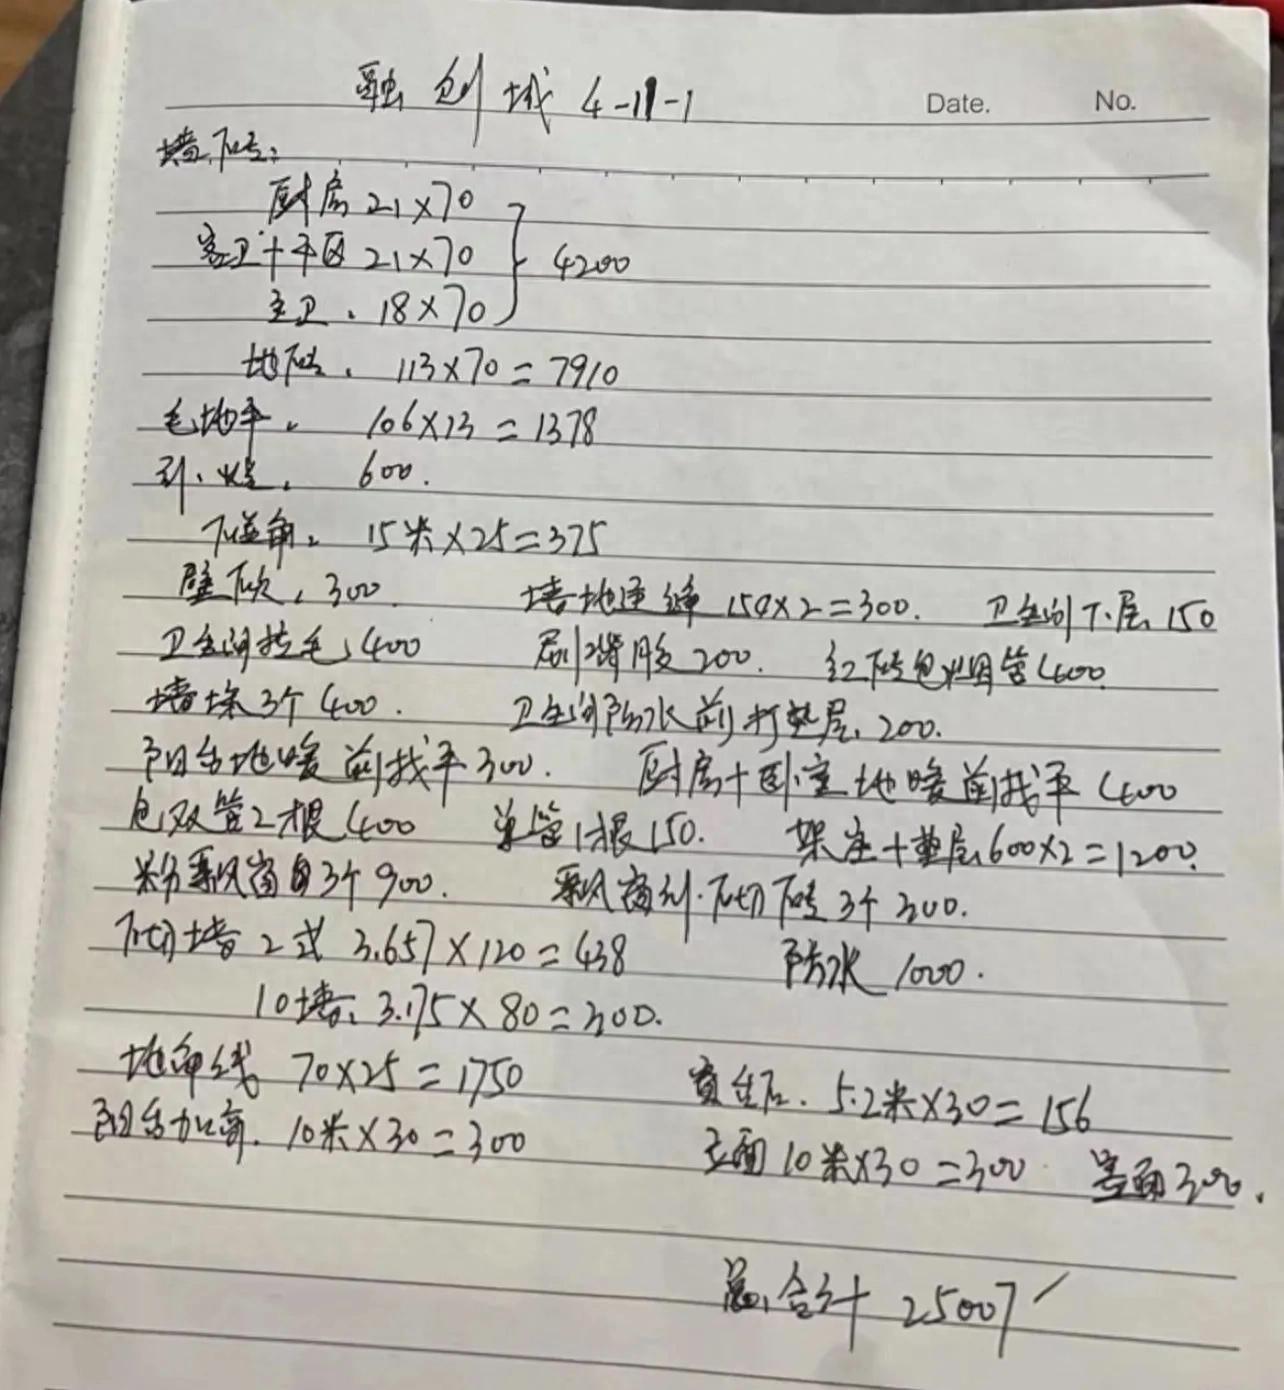 融创城 4-11-1
Date. No.
墙砖:
厨房 21×70
客卫+干区 21×70
主卫. 18×70
4200
地砖. 113×70=7910
毛地平. 106×13=1378
600.
15米×25=375
壁 300. 墙地通缝 150×2=300. 卫生间下层 150
卫生间拉毛 400 刷背胶 200. 红砖包烟管 400
墙垛3个 400. 卫生间防水前打垫层. 200.
阳台地暖前找平 300. 厨房+卧室地暖前找平 400
包双管2根 400 单管1根 150. 架空+垫层 600×2=1200.
粉飘窗 3个 900. 飘窗 砌砖 3个 300.
砌墙 2 3.657×120=438 防水 1000.
10墙. 3.75×80=300.
地角线 70×25=1750 5.2米×30=156
阳台加高. 10米×30=300 立面 10米×30=300 窗面 300.
总合计 25007